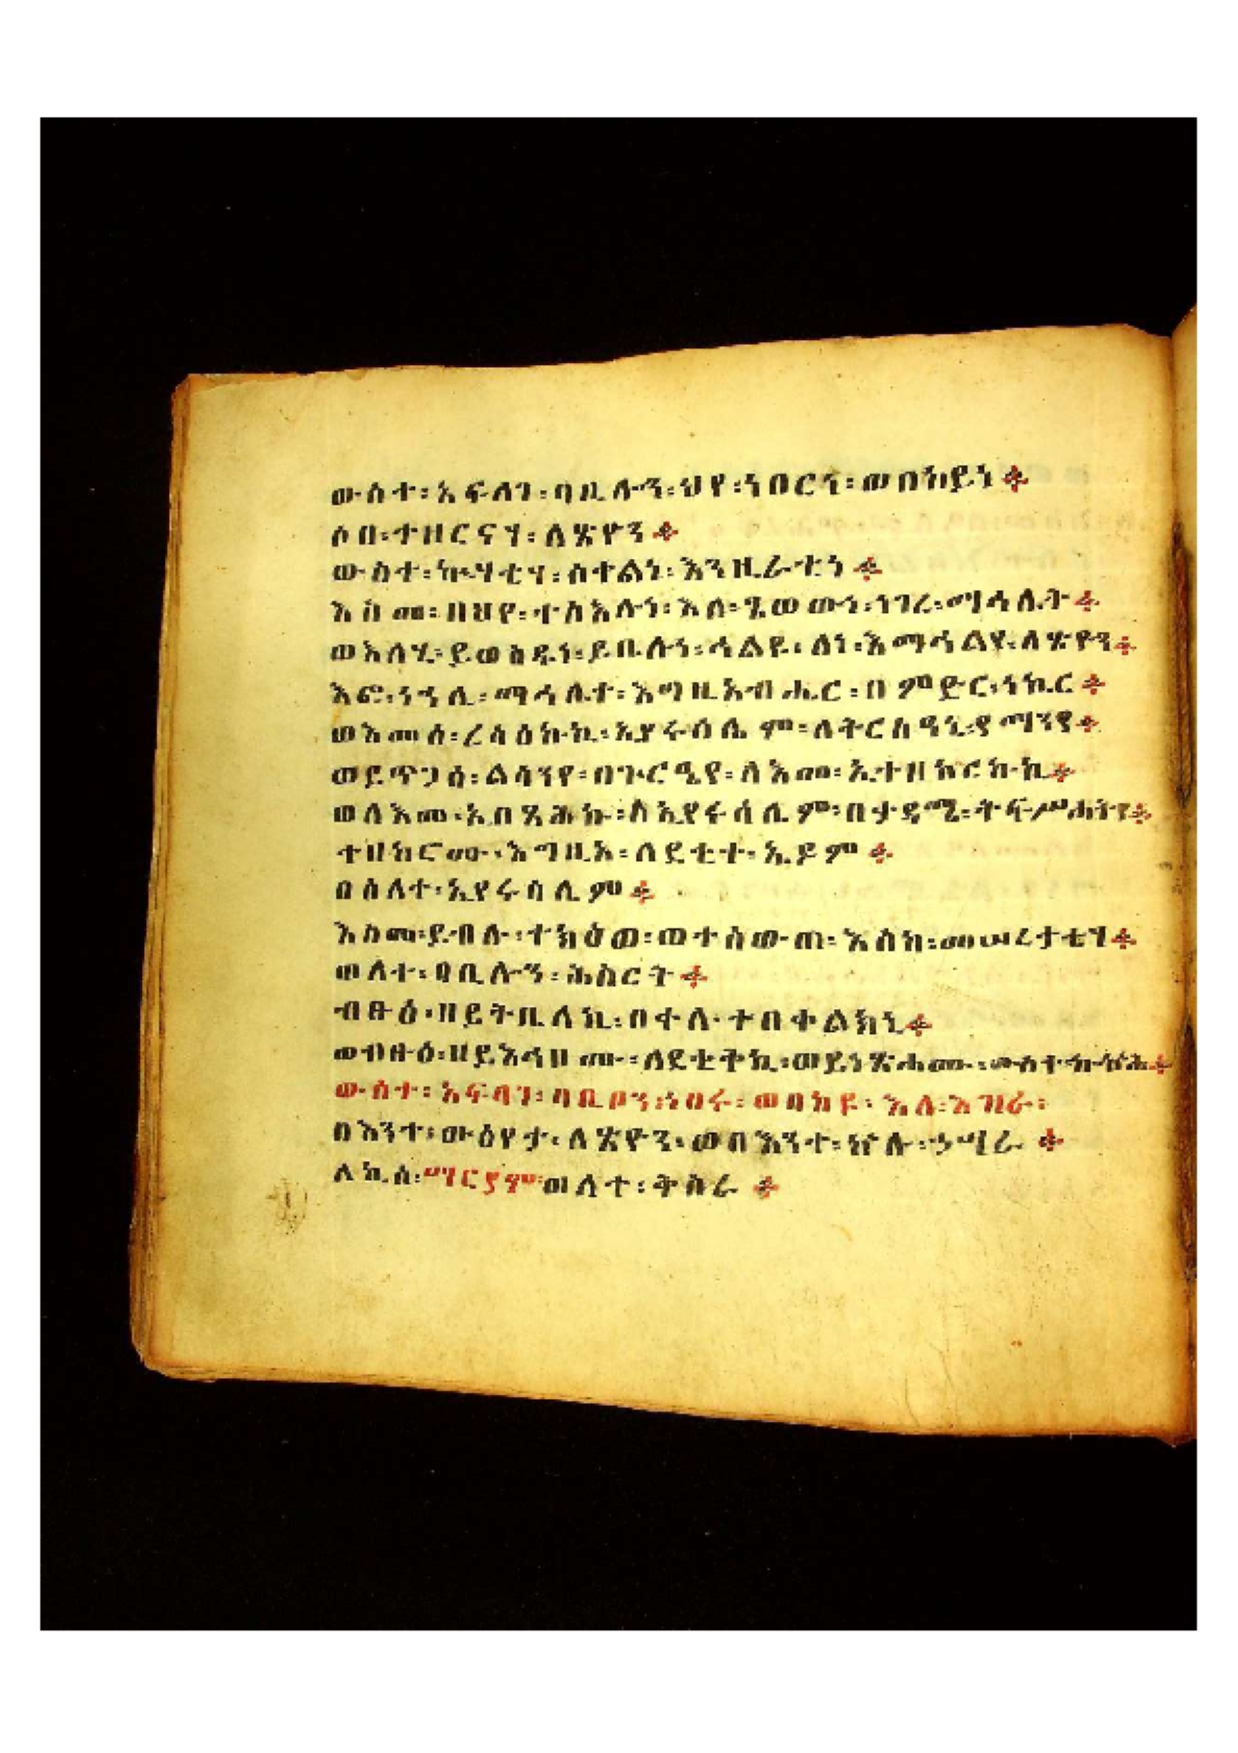 ውስተ፡አፍላገ፡ባቢሎን፡ህየ፡ነበርነ፡ወበከይነ፨
ሶበ፡ተዘርናሃ፡ለጽዮን፨
ውስተ፡ኵሃቲሃ፡ሰተልነ፡እንዚራቲነ፨
እስመ፡በህየ፡ተስእሉነ፡እለ፡ፄወውነ፡ነገረ፡ማሳሌት፨
ወእለሂ፡ይወስዱነ፡ይቤሉነ፡ሓልዩ፡ለነ፡እማሓልዪ፡ለጽዮን፨
እፎ፡ነኀሊ፡ማሓሌተ፡እግዚአብሔር፡በምድር፡ነኪር፨
ወእመሰ፡ረሳዕኩኪ፡ኢየሩሳሌም፡ለትርስዓኒ፡የማንየ፨
ወይጥጋዕ፡ልሳንየ፡በጒርዔየ፡ለእመ፡ኢተዘከርኩኪ፨
ወለእመ፡ኢበጻሕኩ፡ለኢየሩሳሌም፡በቃዳሚ፡ትፍሥሕትየ፨
ተዘከሮሙ፡እግዚአ፡ለደቂቀ፡ኤዶም፨
በዕለተ፡ኢየሩሳሌም፨
እለሙ፡ይብሉ፡ተክዕወ፡ወተሰውጠ፡እስከ፡መሠረታቲሃ፨
ወለተ፡ባቢሎን፡ሕስርት፨
ብፁዕ፡ዘይትቤለኪ፡በቀለ፡ተበቀልክነ፨
ወብፁዕ፡ዘይእኅዞሙ፡ለደቂቅኪ፡ወይነጽሖሙ፡ውስተ፡ኰኵሕ፨
ውስተ፡አፍላገ፡ባቢሎን፡ነበሩ፡ወበከዩ፡እለ፡እዝራ፡
በእንተ፡ውዕየታ፡ለጽዮን፡ወበእንተ፡ኵሉ፡ኃሣራ፨
ለኪሰ፡ማርያም፡ወለተ፡ቅስራ፨